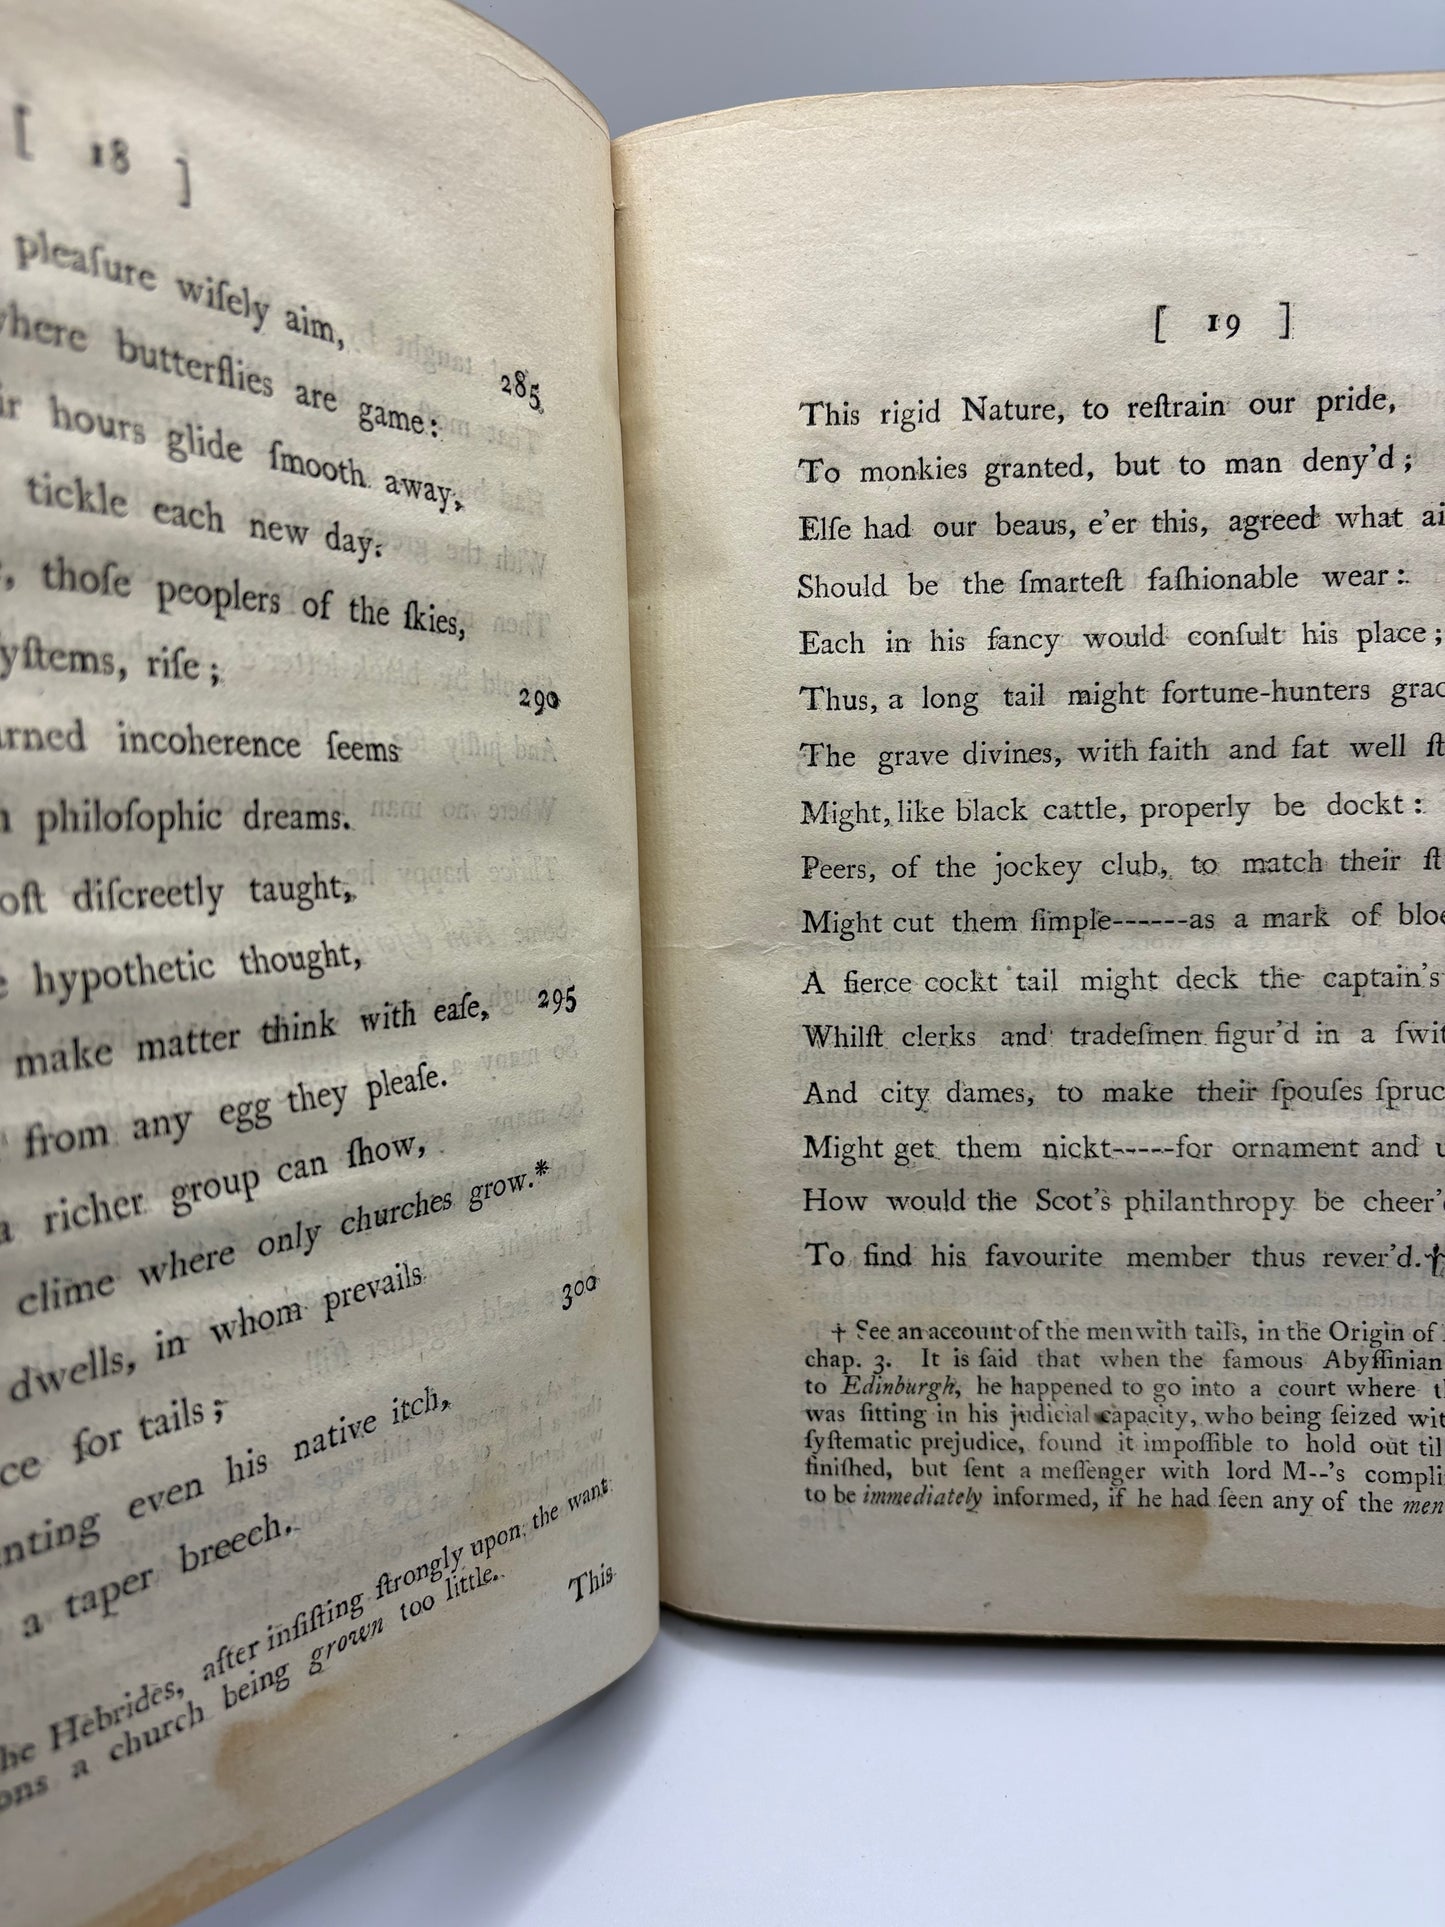 [ 18 ]
pleaſure wiſely aim,
where butterflies are game: 285
hours glide ſmooth away,
tickle each new day.
thoſe peoplers of the ſkies,
ſyſtems, riſe; 290
incoherence ſeems
philoſophic dreams.
diſcreetly taught,
hypothetic thought,
make matter think with eaſe, 295
from any egg they pleaſe.
a richer group can ſhow,
clime where only churches grow.*
dwells, in whom prevails 300
for tails;
even his native itch,
a taper breech.
Hebrides, after inſiſting ſtrongly upon the want
a church being grown too little.
This
[ 19 ]
This rigid Nature, to reſtrain our pride,
To monkies granted, but to man deny'd;
Elſe had our beaus, e'er this, agreed what
Should be the ſmarteſt faſhionable wear:
Each in his fancy would conſult his place;
Thus, a long tail might fortune-hunters
The grave divines, with faith and fat well
Might, like black cattle, properly be dockt:
Peers, of the jockey club, to match their
Might cut them ſimple------as a mark of
A fierce cockt tail might deck the captain's
Whilſt clerks and tradeſmen figur'd in a
And city dames, to make their ſpouſes
Might get them nickt-----for ornament and
How would the Scot's philanthropy be
To find his favourite member thus rever'd.†
† See an account of the men with tails, in the Origin of
chap. 3. It is ſaid that when the famous Abyſſinian
to Edinburgh, he happened to go into a court where
was ſitting in his judicial capacity, who being ſeized
ſyſtematic prejudice, found it impoſſible to hold out
finiſhed, but ſent a meſſenger with lord M--'s
to be immediately informed, if he had ſeen any of the men